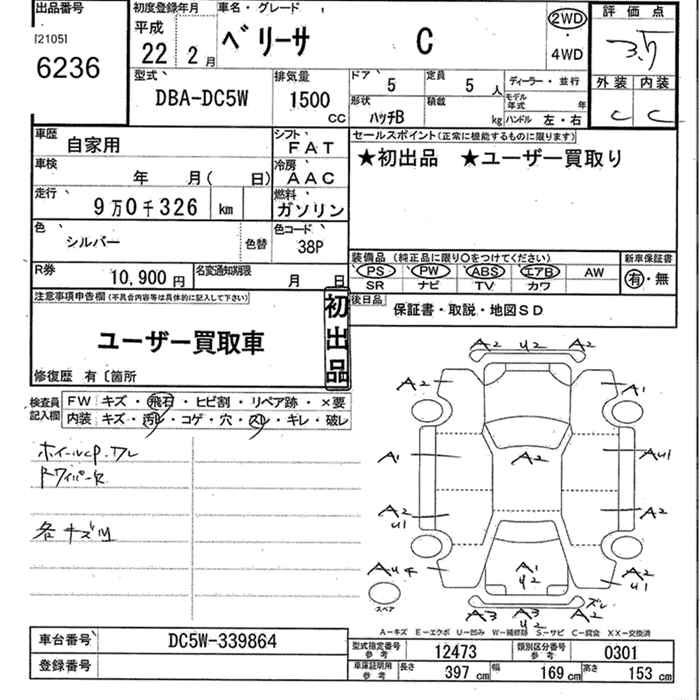 出品番号
[2105]
6236
初度登録年月
平成
22年 2月
車名・グレード
ベリーサ C
2WD
・
4WD
評価点
3.5
外装 内装
C C
型式
DBA-DC5W
排気量
1500
CC
ドア 5
定員 5人
形状 ハッチB
積載 kg
ディーラー・並行
モデル年式 年
ハンドル 左・右
車歴 自家用
シフト FAT
車検 年 月( 日)
冷房 AAC
走行 9万0千326 km
燃料 ガソリン
色 シルバー 色替
色コード 38P
R券 10,900円
名変通知期限 月 日
セールスポイント(正常に機能するものに限ります)
★初出品 ★ユーザー買取り
装備品 (純正品に限り○をつけてください)
PS PW ABS エアB AW
SR ナビ TV カワ
新車保証書
有・無
後日品
保証書・取説・地図SD
注意事項申告欄(不具合内容等は具体的に記入して下さい)
ユーザー買取車
初出品
修復歴 有 〔箇所
検査員
記入欄
FW キズ・飛石・ヒビ割・リペア跡・×要
内装 キズ・汚レ・コゲ・穴・スレ・キレ・破レ
ホイールCP.ワレ
Rワイパー欠
各キズM
A2 U2 A2
A2 A1
A1 A2 AU1
A2 U1 A2
AU4 A1 U2 A2 U1
スペア
A3 A3 U2 A2 ズレ
A-キズ E-エクボ U-凹み W-補修跡 S-サビ C-腐食 XX-交換済
車台番号 DC5W-339864
登録番号
型式指定番号 参考 12473
類別区分番号 参考 0301
車庫証明用 参考
長さ 397 cm
幅 169 cm
高さ 153 cm